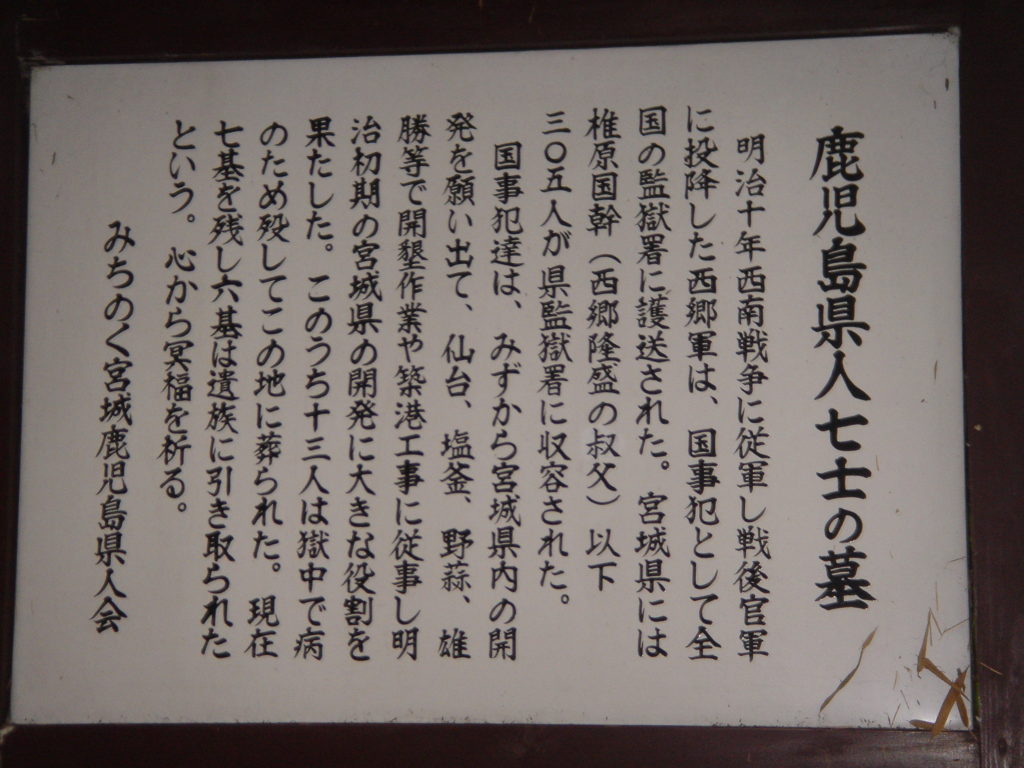 鹿児島県人七士の墓
明治十年西南戦争に従軍し戦後官軍
に投降した西郷軍は、国事犯として全
国の監獄署に護送された。宮城県には
椎原国幹（西郷隆盛の叔父）以下
三〇五人が県監獄署に収容された。
国事犯達は、みずから宮城県内の開
発を願い出て、仙台、塩釜、野蒜、雄
勝等で開墾作業や築港工事に従事し明
治初期の宮城県の開発に大きな役割を
果たした。このうち十三人は獄中で病
のため歿してこの地に葬られた。現在
七基を残し六基は遺族に引き取られた
という。心から冥福を祈る。
みちのく宮城鹿児島県人会